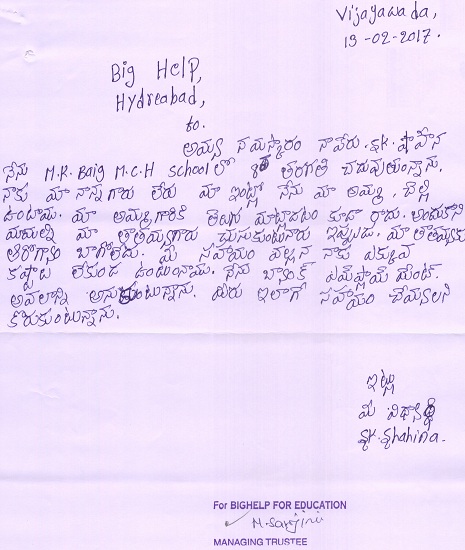 Vijayawada,
13-02-2017.
Big Help,
Hydreabad,
to.
అయ్య నమస్కారం నాపేరు. SK. షాహీన
నేను M.K. Baig M.C.H School లో 8th తరగతి చదువుతున్నాను.
నాకు మా నాన్నగారు లేరు మా ఇంట్లో నేను మా అమ్మ, చెల్లి
ఉంటాము. మా అమ్మగారికి తెలుగు మాట్లాడటం కూడా రాదు. అందుకని
మమల్ని మా తాతయ్యగారు చుసుకుంటునారు ఇప్పుడు. మా తాతయ్యకు
ఆరోగ్యం బాగోలేదు. మీ సహాయం వల్లన నాకు ఎక్కువ
కష్టాలు లేకుండ ఉంటునాము. నేను బ్యాంక్ ఎమప్లాయిమెంట్.
అవలాన్ని అనుకుంటున్నాను. మీరు ఇలాగే సహాయం చేయ్యలని
కోరుకుంటున్నాను.
ఇట్లు
మీ విధ్యార్థి
SK. Shahina.
For BIGHELP FOR EDUCATION
M. Sarojini
MANAGING TRUSTEE